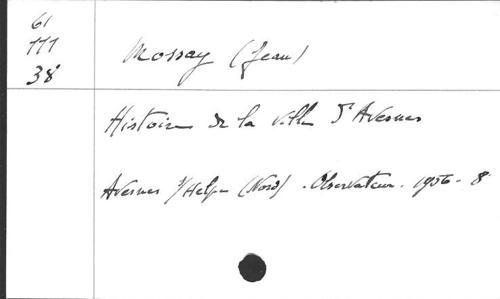 61
777
38
Mossay (Jean)
Histoire de la ville d'Avesnes
Avesnes s/Helpe (Nord). Observateur. 1956. 8